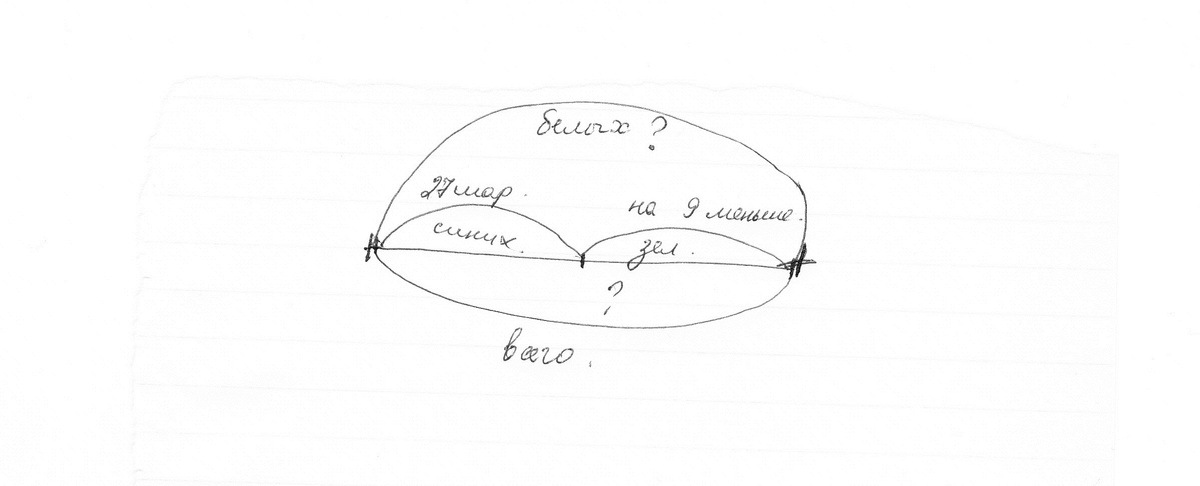 белых ?
27 шар.
на 9 меньше.
синих.
зел.
?
всего.